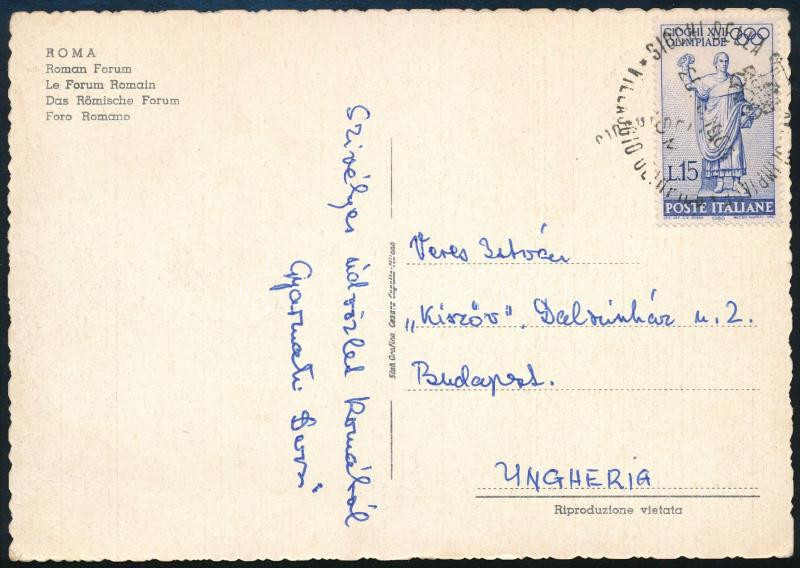 ROMA
Roman Forum
Le Forum Romain
Das Römische Forum
Foro Romano
Szivélyes üdvözlet Romából
Gyarmati Dezső
Stab. Grafico Cesare Capello-Milano
GIOCHI XVII
OLIMPIADE
L.15
POSTE ITALIANE
1960
Veres István
„Kiszöv”. Dalszinház u. 2.
Budapest.
UNGHERIA
Riproduzione vietata